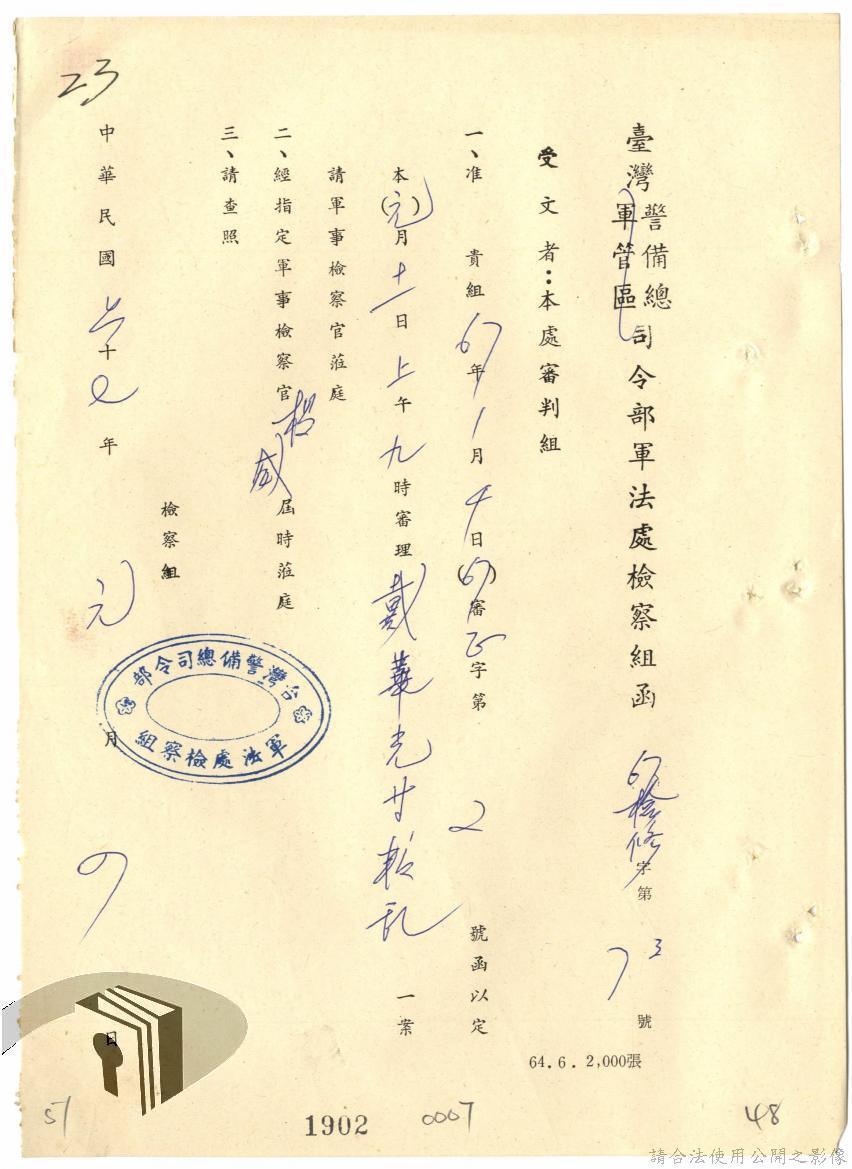 23
臺灣警備總司令部軍法處檢察組函 67檢修字第73號
軍管區
受文者：本處審判組
一、准 貴組67年1月4日(67)審正字第2號函以定
本(元)月十一日上午九時審理戴華光等叛亂一案
請軍事檢察官蒞庭
二、經指定軍事檢察官 威屆時蒞庭
三、請查照
檢察組
中華民國六十七年元月 日
台灣警備總司令部
軍法處檢察組
64.6.2,000張
51
1902
0007
48
請合法使用公開之影像